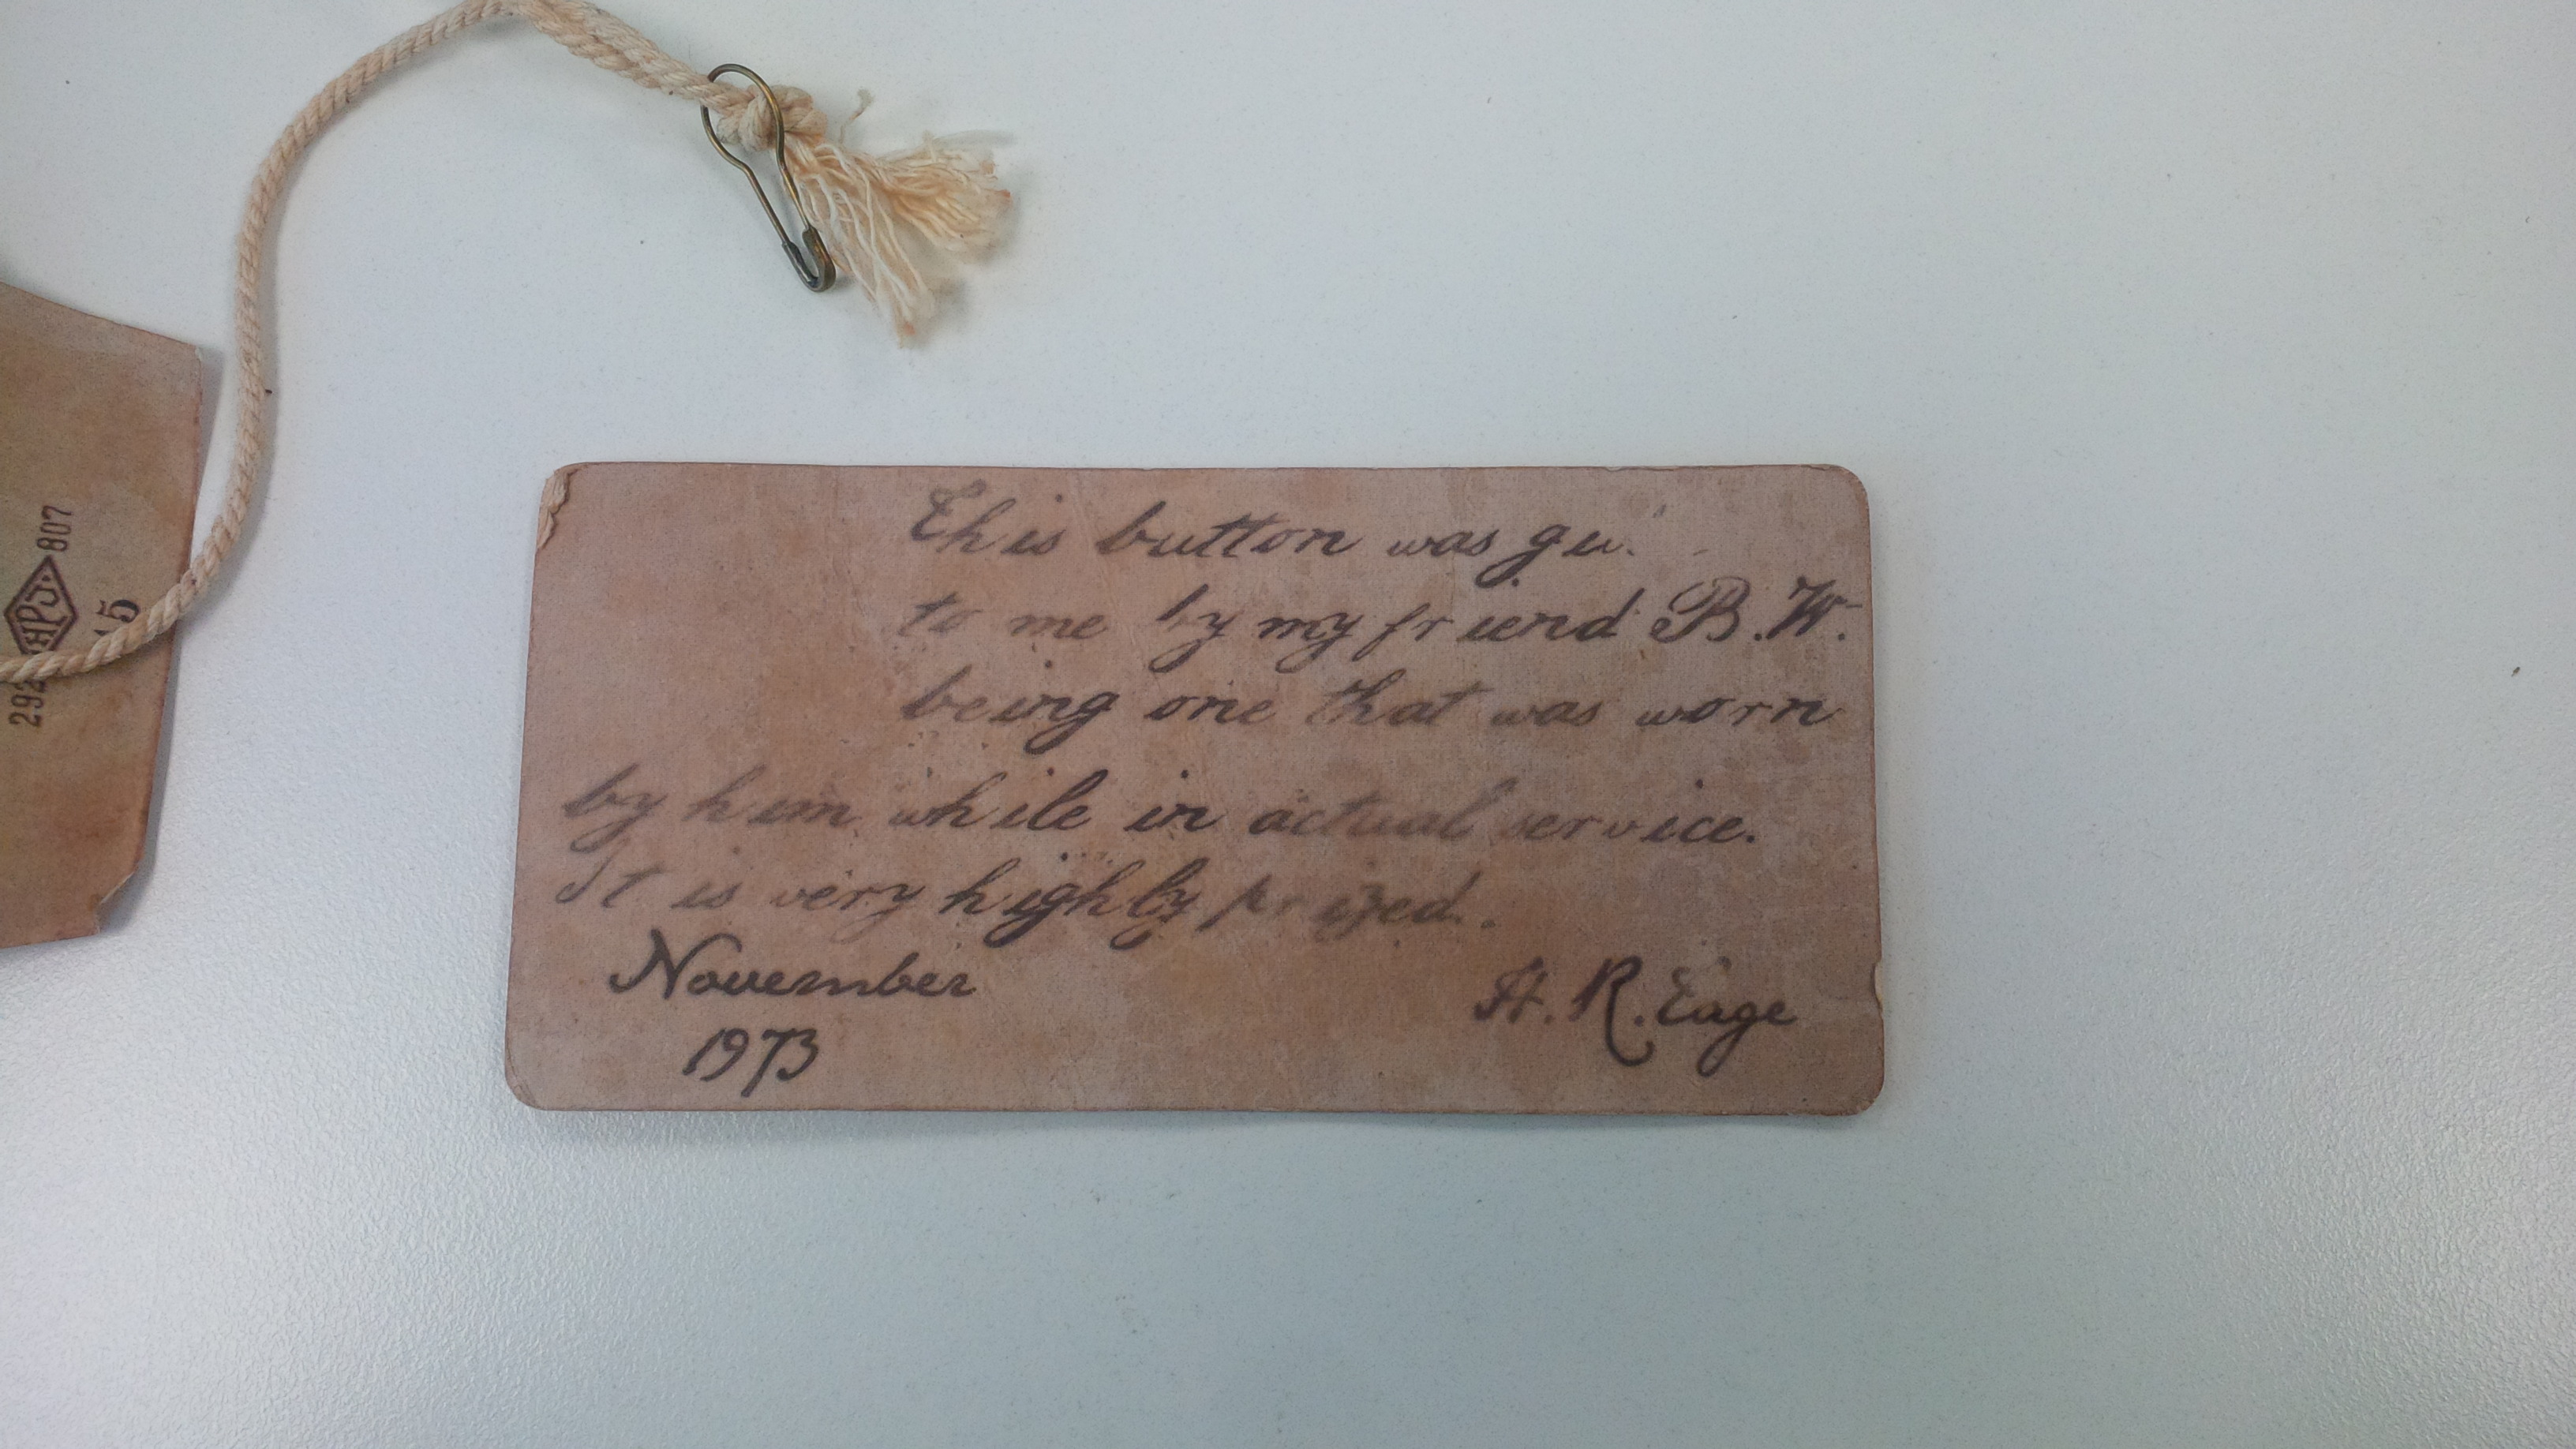 This button was
to me by my friend B.W.
being one that was worn
by him while in actual service.
It is very highly prized.
November
1973
H. R. Eage
807
HPJ.
292
15